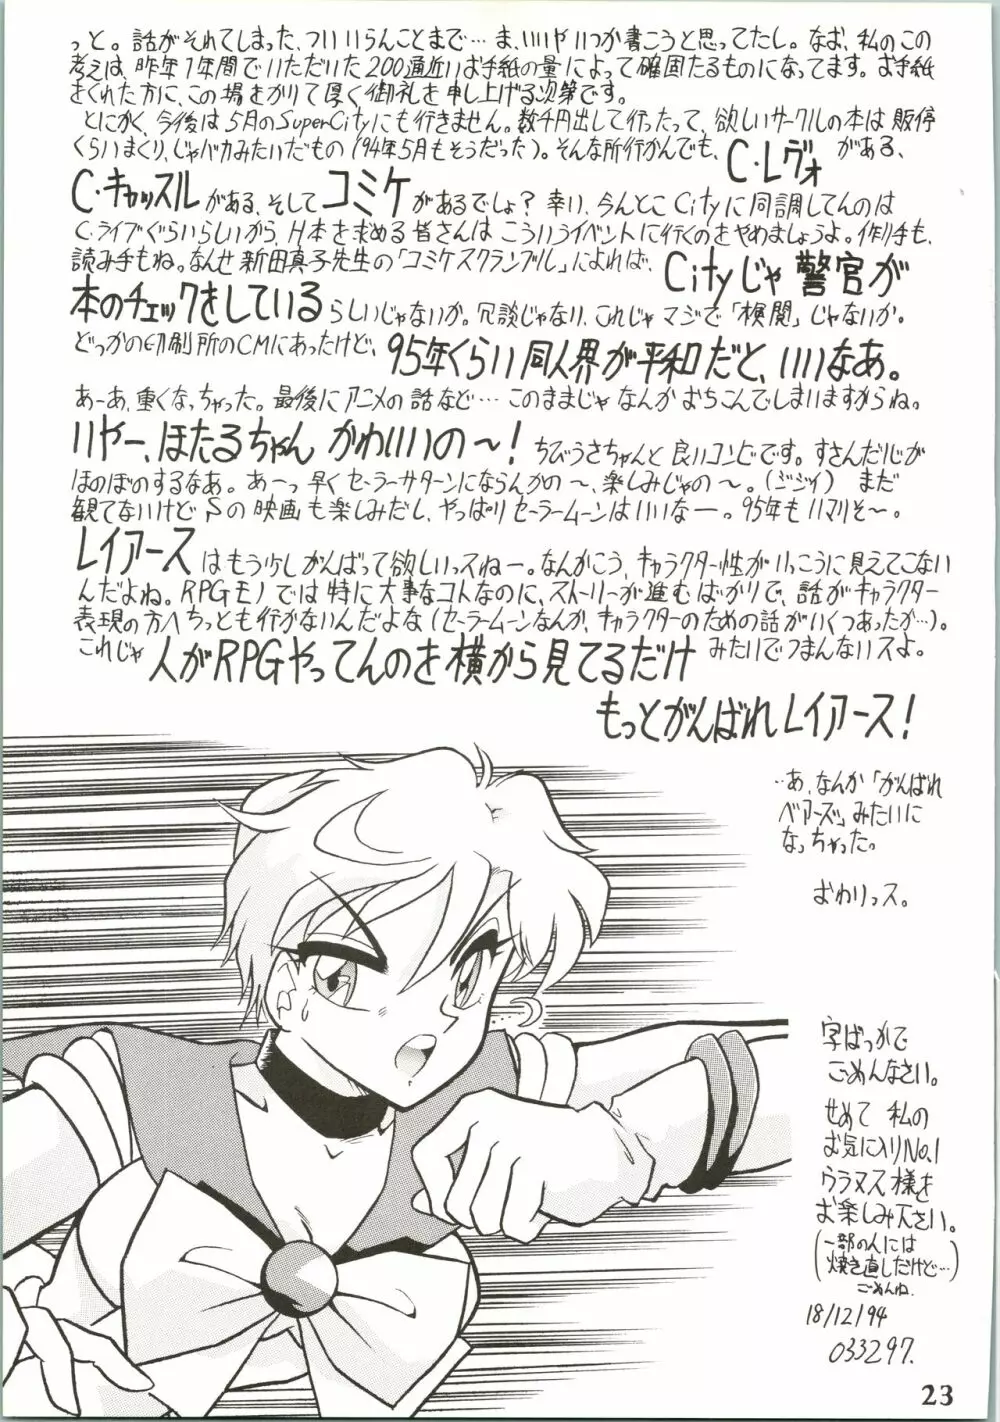 っと。話がそれてしまった、ついいらんことまで…ま、いいやいつか書こうと思ってたし。なお、私のこの
考えは、昨年1年間でいただいた200通近いお手紙の量によって確固たるものになってます。お手紙
をくれた方に、この場をかりて厚く御礼を申し上げる次第です。
とにかく、今後は5月のSuperCityにも行きません。数千円出して行ったって、欲しいサークルの本は販停
くらいまくり、じゃバカみたいだもの('94年5月もそうだった)。そんな所行かんでも、C・レヴォがある、
C・キャッスルがある、そしてコミケがあるでしょ?幸い、今んとこCityに同調してんのは
C・ライブぐらいらしいから、H本を求める皆さんはこういうイベントに行くのをやめましょうよ。作り手も、
読み手もね。なんせ新田真子先生の「コミケスクランブル」によれば、Cityじゃ警官が
本のチェックをしているらしいじゃないか。冗談じゃない、これじゃマジで「検閲」じゃないか。
どっかの印刷所のCMにあったけど、95年くらい同人界が平和だと、いいなあ。
あーあ、重くなっちゃった。最後にアニメの話など…このままじゃなんかおちこんでしまいますからね。
いやー、ほたるちゃんかわいいの〜!ちびうさちゃんと良いコンビです。すさんだ心が
ほのぼのするなあ。あーっ早くセーラーサターンにならんかの〜、楽しみじゃの〜。(ジジィ) まだ
観てないけどSの映画も楽しみだし、やっぱりセーラームーンはいいなー。95年もハマりそ〜。
レイアースはもう少しがんばって欲しいっスねー。なんかこう、キャラクター性がいっこうに見えてこない
んだよね。RPGモノでは特に大事なコトなのに、ストーリーが進むばかりで、話がキャラクター
表現の方へちっとも行かないんだよな(セーラームーンなんか、キャラクターのための話がいくつあったか…)。
これじゃ人がRPGやってんのを横から見てるだけみたいでつまんないスよ。
もっとがんばれレイアース!
…あ、なんか「がんばれ
ベアーズ」みたいに
なっちゃった。
おわりっス。
字ばっかで
ごめんなさい。
せめて私の
お気に入りNo.1
ウラヌス様を
お楽しみ下さい。
(一部の人には
焼き直しだけど…)
ごめんね.
18/12/94
033297.
23